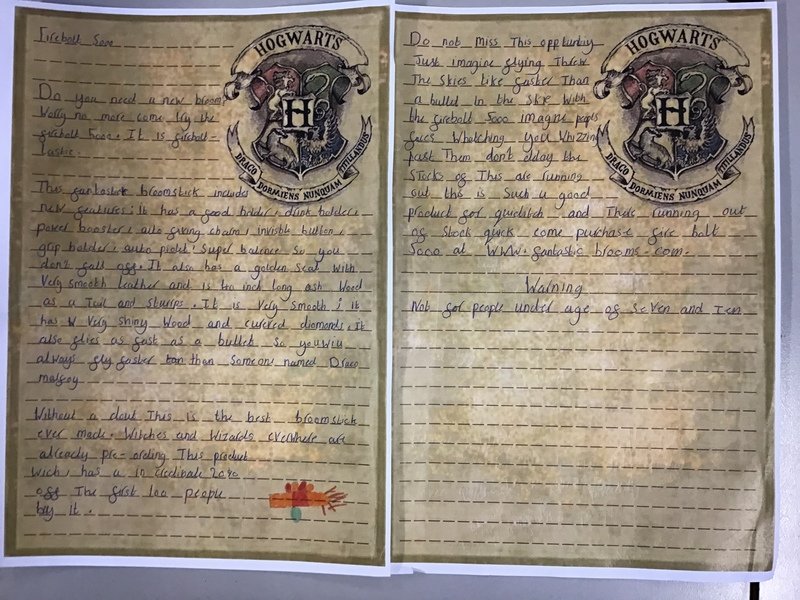 Firebolt 5000
HOGWARTS
DRACO DORMIENS NUNQUAM TITILLANDUS
Do you need a new broom
Worry no more come try the
firebolt 5000. It is firebolt-
tastic.
This fantastick broomstick includes
new features: it has a good holder, drink holder,
power booster, auto fixing charm, invisble button,
grip holder, auto pilot, Super balence so you
don't fall off. It also has a golden seat with
Very smooth leather and is ten inch long ash wood
as a Tail and sturrps. It is Very smooth; it
has Very shiny Wood and curcred diamonds. It
also flies as fast as a bullet so you will
always fly faster than Someone named Draco
malfoy
Without a dout This is the best broomstick
ever made. Witches and Wizards everwhere are
alleready pre-ording This product
Wich has a in credibale 20%
off The first 100 people
buy it.
HOGWARTS
DRACO DORMIENS NUNQUAM TITILLANDUS
Do not miss This oppttunity
Just imagine flying Threw
The skies like faster Than
a bulled in the skie With
the firebolt 5000 imagine peopls
faces Whatching you Whizzing
past Them don't dday the
Stocks of This are running
out the is Such a good
product for quiditch and There running out
of Stock quick come purchase fire bolt
5000 at WWW.fantastic brooms.com.
Warning
Not for people under age of Seven and Ten